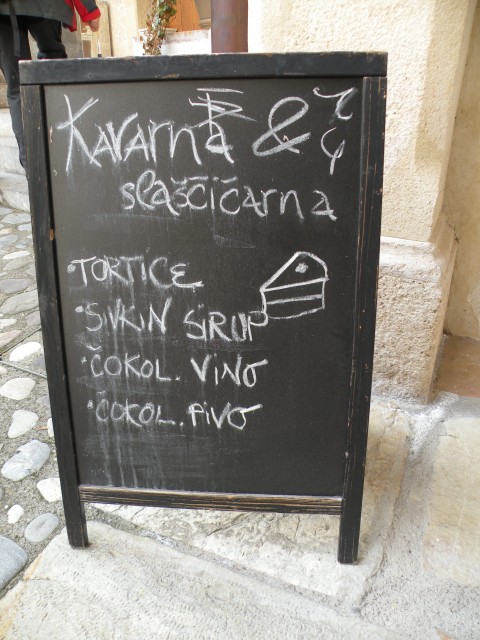 Kavarna &
slaščičarna
·TORTICE
·SIVKIN SIRUP
·ČOKOL. VINO
·ČOKOL. PIVO